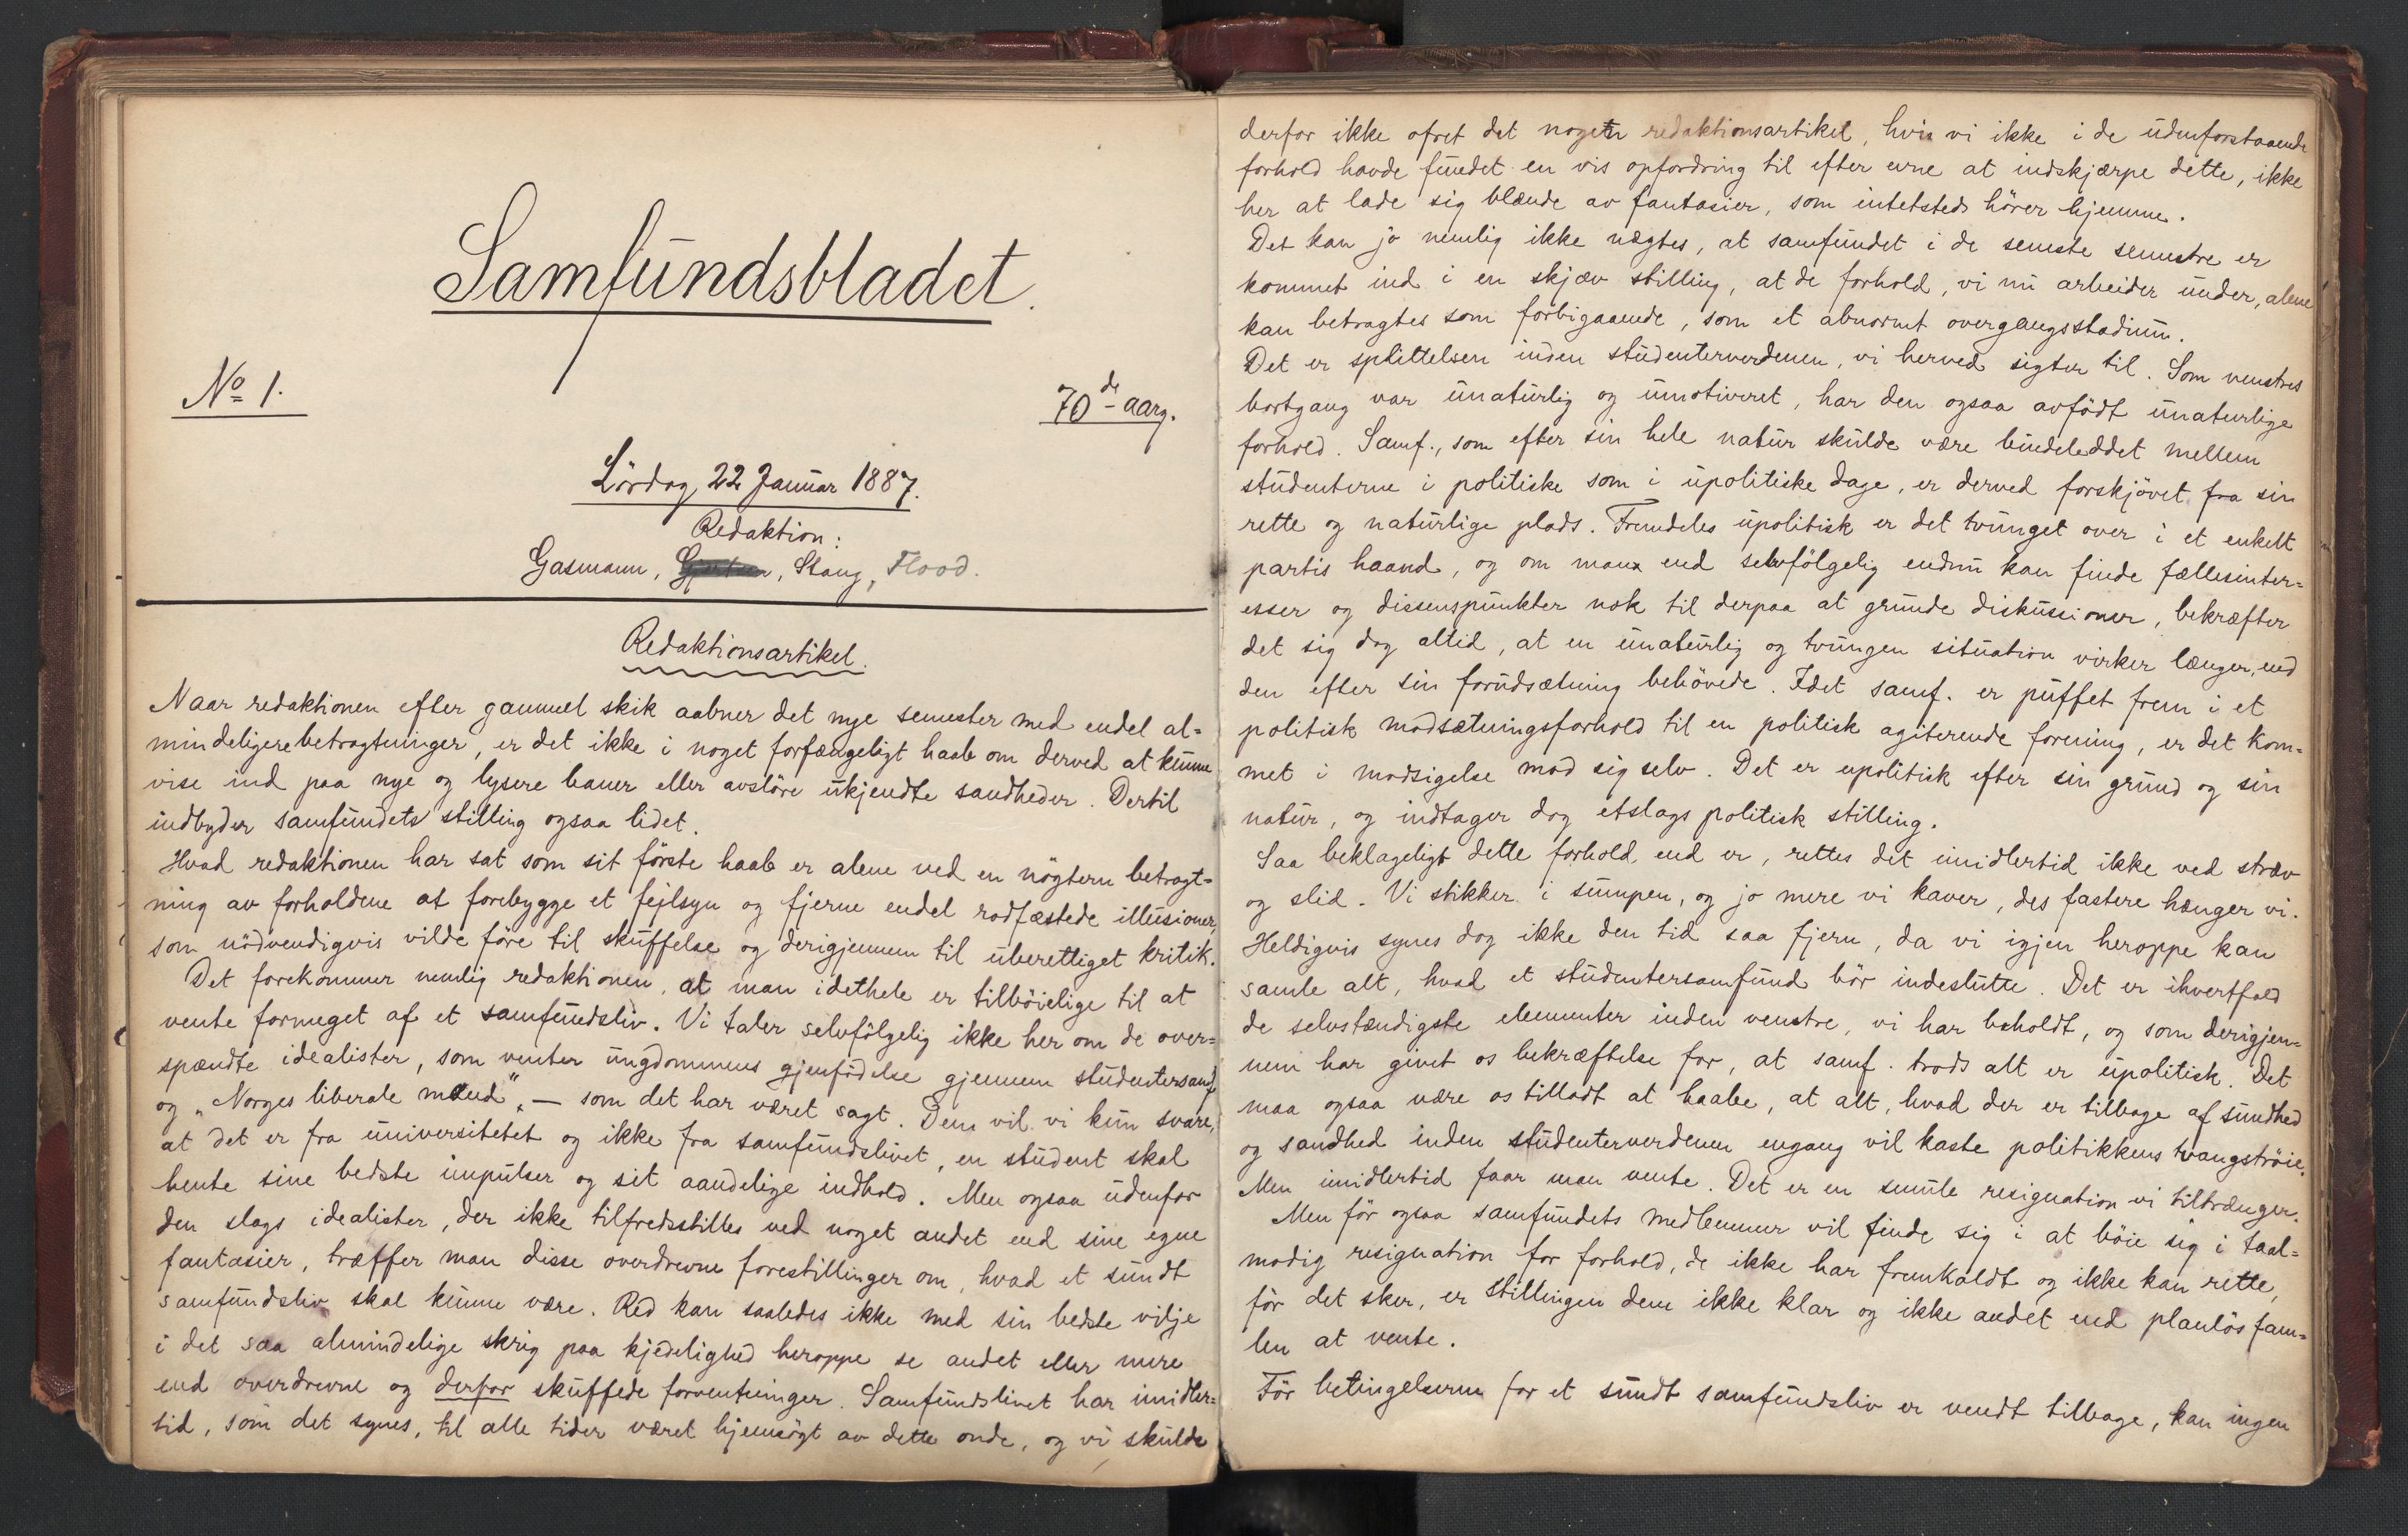 Samfundsbladet.
No 1.
70de aarg.
Lördag 22 Januar 1887.
Redaktion:
Gasmann, Stang, Flood.
Redaktionsartikel.
Naar redaktionen efter gammel skik aabner det nye semester med endel al=
mindeligere betragtninger, er det ikke i noget forfængeligt haab om derved at kunne
vise ind paa nye og lysere baner eller avslöre ukjendte sandheder. Dertil
indbyder samfundets stilling ogsaa lidet.
Hvad redaktionen har sat som sit förste haab er alene ved en nögtern betragt=
ning av forholdene at forebygge et fejlsyn og fjerne endel rodfæstede illusioner,
som nödvendigvis vilde före til skuffelse og derigjennem til uberettiget kritik.
Det forekommer nemlig redaktionen, at man idethele er tilböielige til at
vente formeget af et samfundsliv. Vi taler selvfölgelig ikke her om de over=
spændte idealister, som venter ungdommens gjenfödelse gjennem studentersamf.
og „Norges liberale mænd“, — som det har været sagt. Dem vil vi kun svare,
at det er fra universitetet og ikke fra samfundslivet, en student skal
hente sine bedste impulser og sit aandelige indhold. Men ogsaa udenfor
den slags idealister, der ikke tilfredsstilles ved noget andet end sine egne
fantasier, træffer man disse overdrevne forestillinger om, hvad et sundt
samfundsliv skal kunne være. Red kan saaledes ikke med sin bedste vilje
i det saa almindelige skrig paa kjedelighed heroppe se andet eller mere
end overdrevne og derfor skuffede forventninger. Samfundslivet har imidler=
tid, som det synes, til alle tider været hjemsögt av dette onde, og vi skulde
derfor ikke ofret det nogen redaktionsartikel, hvis vi ikke i de udenforstaaende
forhold havde fundet en vis opfordring til efter evne at indskjærpe dette, ikke
her at lade sig blænde av fantasier, som intetsteds hörer hjemme.
Det kan jo nemlig ikke nægtes, at samfundet i de seneste semestre er
kommet ind i en skjæv stilling, at de forhold, vi nu arbeider under, alene
kan betragtes som forbigaaende, som et abnormt overgangsstadium.
Det er splittelsen inden studenterverdenen, vi herved sigter til. Som venstres
bortgang var unaturlig og umotiveret, har den ogsaa avfödt unaturlige
forhold. Samf., som efter sin hele natur skulde være bindeleddet mellem
studenterne i politiske som i upolitiske dage, er derved forskjövet fra sin
rette og naturlige plads. Fremdeles upolitisk er det tvunget over i et enkelt
partis haand, og om man end selvfölgelig endnu kan finde fællesinter=
esser og dissenspunkter nok til derpaa at grunde diskussioner, bekræfter
det sig dog altid, at en unaturlig og tvungen situation virker længer, end
den efter sin forudsætning behövede. Idet samf. er puffet frem i et
politisk modsætningsforhold til en politisk agiterende forening, er det kom=
met i modsigelse mod sig selv. Det er upolitisk efter sin grund og sin
natur, og indtager dog etslags politisk stilling.
Saa beklageligt dette forhold end er, rettes det imidlertid ikke ved stræv
og slid. Vi stikker i sumpen, og jo mere vi kaver, des fastere hænger vi.
Heldigvis synes dog ikke den tid saa fjern, da vi igjen heroppe kan
samle alt, hvad et studentersamfund bör indeslutte. Det er ihvertfald
de selvstændigste elementer inden venstre, vi har beholdt, og som derigjen=
nem har givet os bekræftelse for, at samf. trods alt er upolitisk. Det
maa ogsaa være os tilladt at haabe, at alt, hvad der er tilbage af sundhed
og sandhed inden studenterverdenen engang vil kaste politikkens tvangströie.
Men imidlertid faar man vente. Det er en smule resignation vi tiltrænger.
Men för ogsaa samfundets medlemmer vil finde sig i at böie sig i taal=
modig resignation for forhold, de ikke har fremkaldt og ikke kan rette,
för det sker, er stillingen dem ikke klar og ikke andet end planlös fam=
len at vente.
För betingelserne for et sundt samfundsliv er vendt tilbage, kan ingen